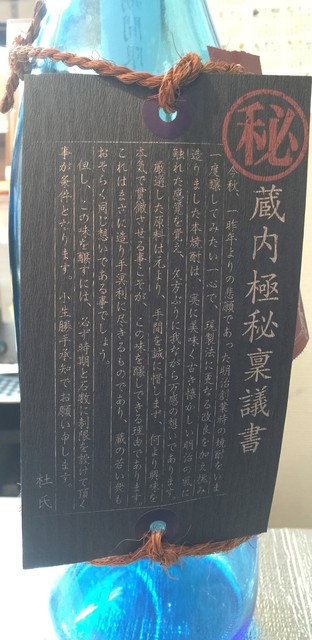 ㊙
蔵内極秘稟議書
今秋、一昨年よりの悲願であった明治創業時の焼酎をいま
一度醸してみたい一心で、現製法に更なる改良を加え挑み
造りました本焼酎は、実に美味く古き懐かしい明治の風に
触れた感覚を覚え、久方ぶりに我ながら万感の想いであります。
厳選した原料は元より、手間を誠に惜しまず、何より興味を
本気で貫徹させる事こそが、この味を醸しできる理由であります。
これはまさに造り手冥利に尽きるものであり、蔵の若い衆も
おそらく同じ想いである事でしょう。
但し、この味を醸すには、必ず時期と石数に制限を設けて頂く
事が条件となります。小生勝手承知でお願い申します。
杜氏